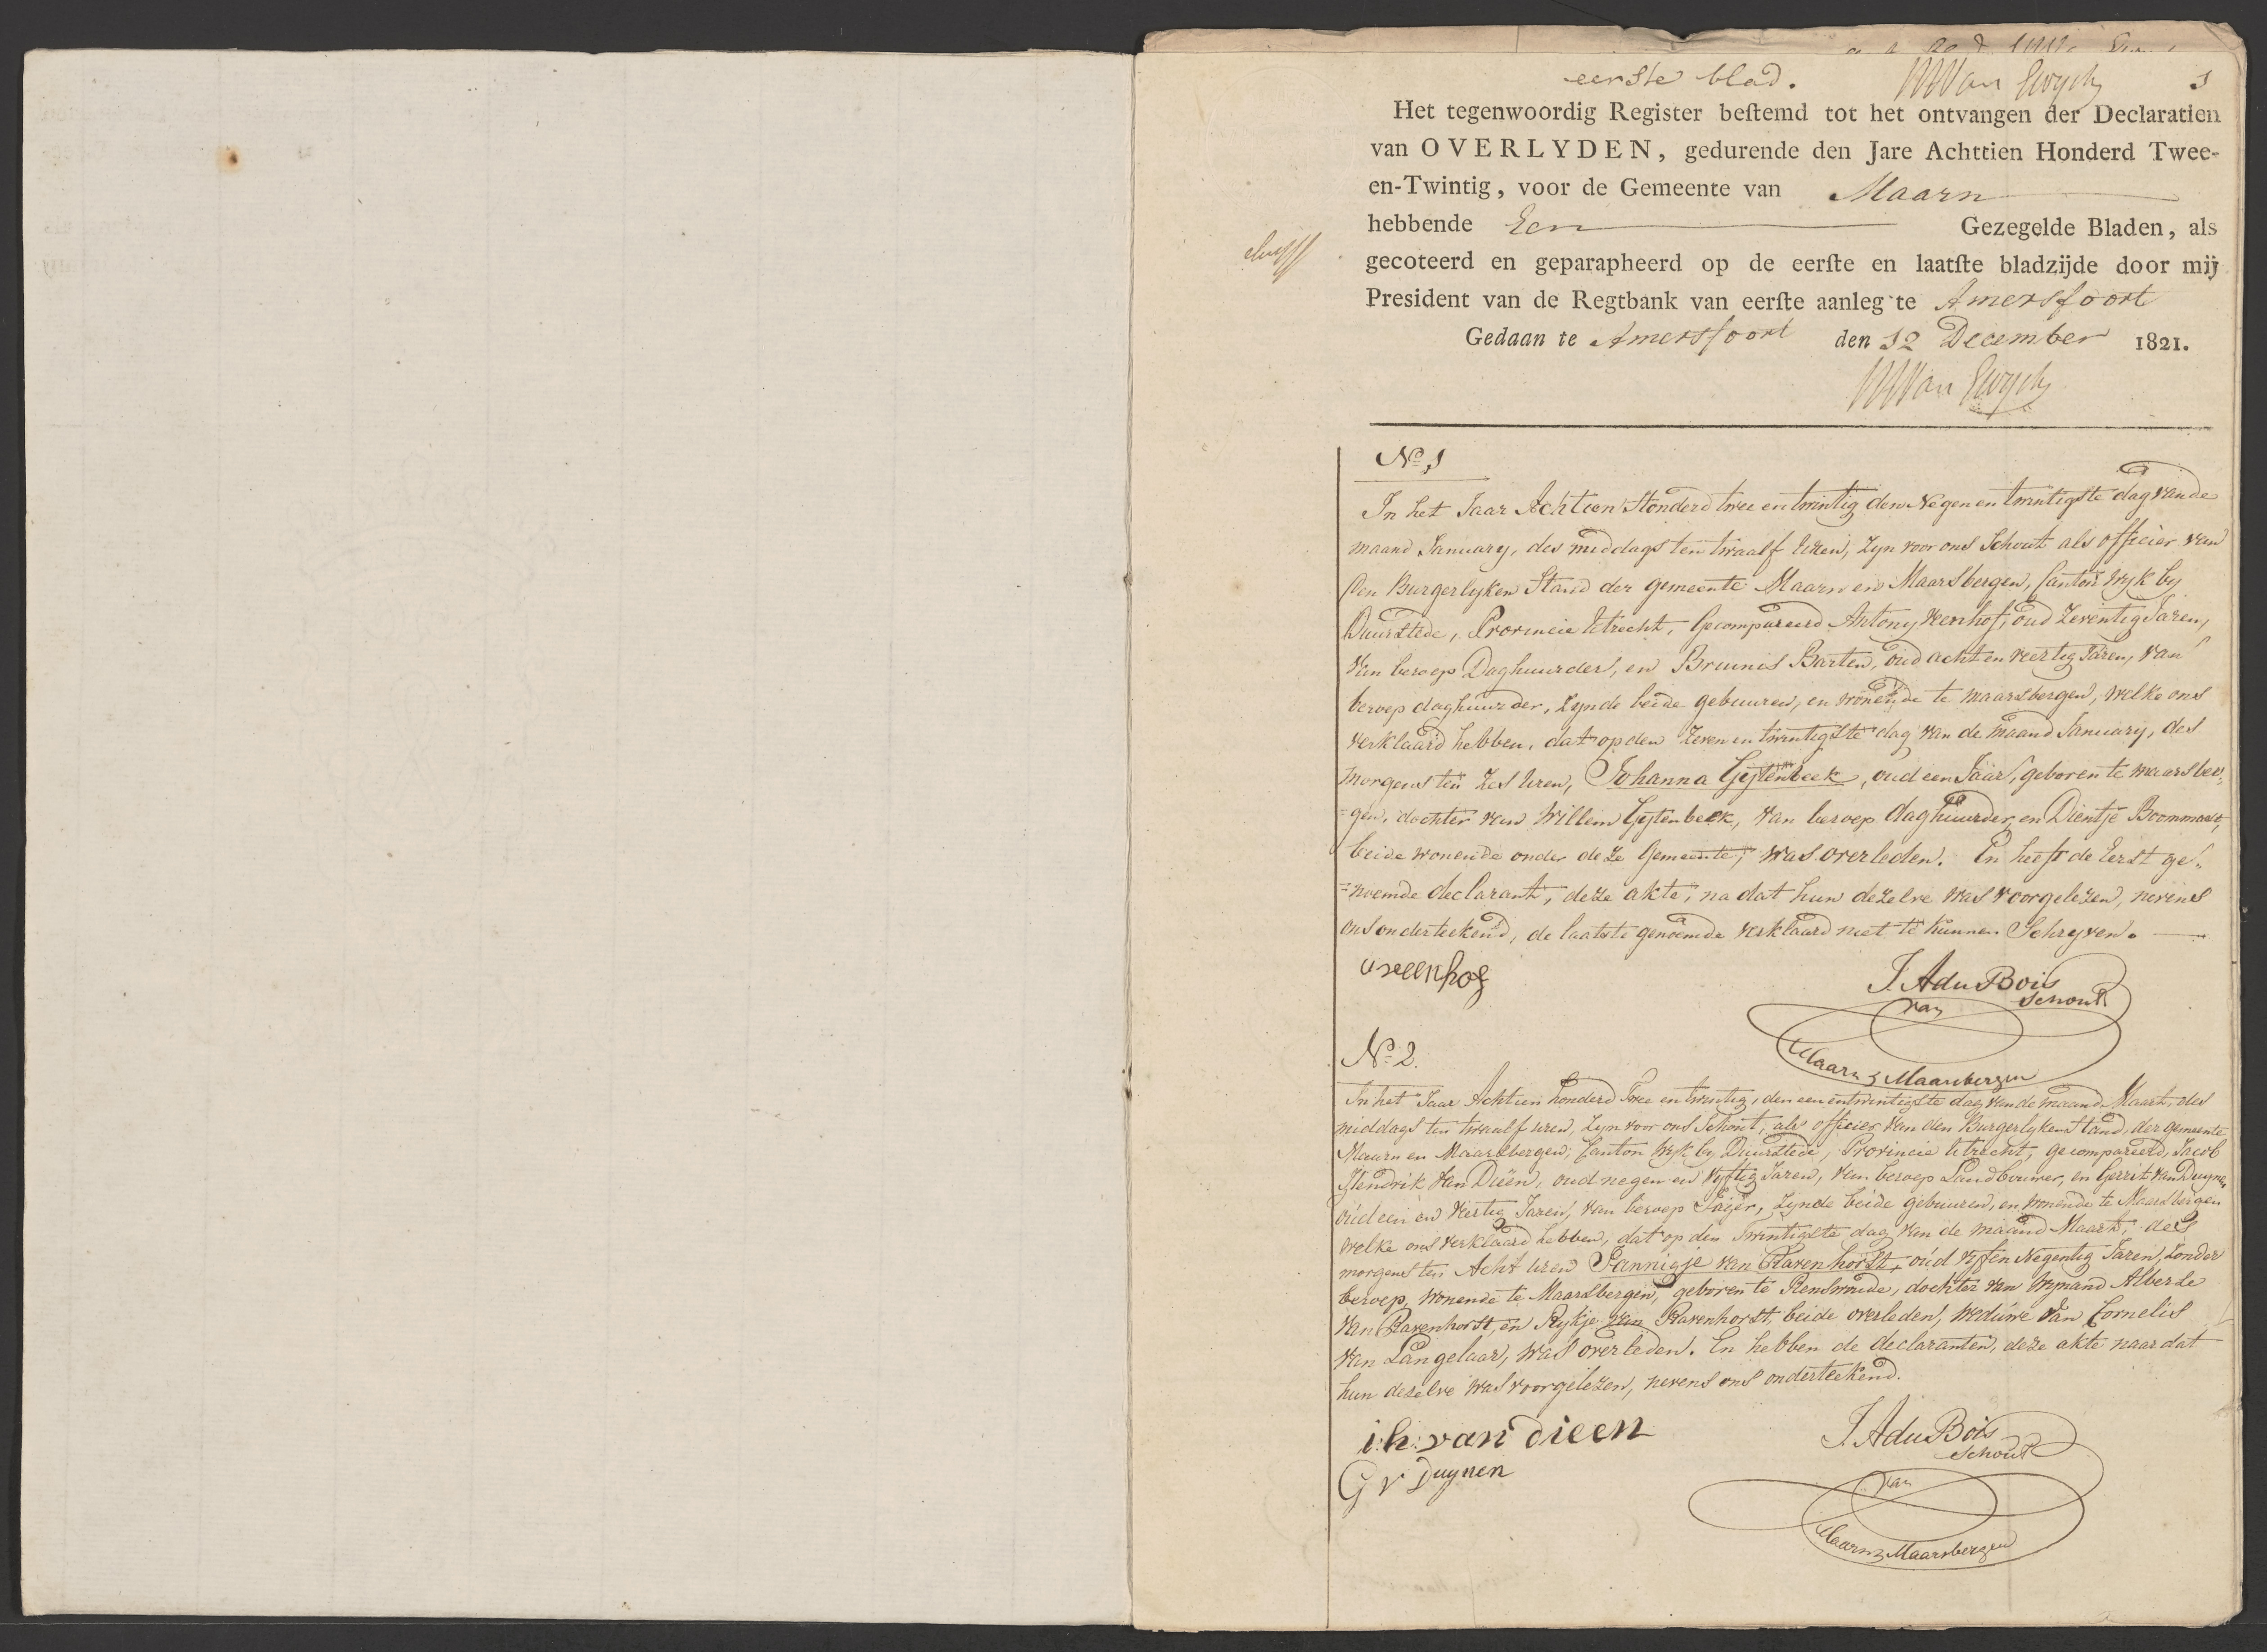 eerste blad. WVan Ewyck 1
Het tegenwoordig Register beſtemd tot het ontvangen der Declaratien
van OVERLYDEN, gedurende den Jare Achttien Honderd Twee-
en-Twintig, voor de Gemeente van Maarn
hebbende Een Gezegelde Bladen, als
gecoteerd en geparapheerd op de eerſte en laatſte bladzijde door mij
President van de Regtbank van eerſte aanleg te Amersfoort
Gedaan te Amersfoort den 12 December 1821.
WVan Ewyck
No. 1
In het Jaar Achtien Honderd twee en twintig den Negen en twintigste dag van de
maand January, des middags ten twaalf uren, zyn voor ons Schout als officier van
den Burgerlyken Stand der gemeente Maarn en Maarsbergen, Canton Wyk by
Duurstede, Provincie Utrecht, Gecompareerd Antony Veenhof, oud Zeventig Jaren,
Van beroep Daghuurder, en Bruinis Barten, oud acht en veertig Jaren, van
beroep daghuurder, zynde beide gebuuren, en wonende te maarsbergen, welke ons
verklaard hebben, dat op den Zeven en twintigste dag van de maand January, des
morgens ten zes uren, Johanna Gijtenbeek, oud een Jaar, geboren te maarsber
=gen, dochter van Willem Gijtenbeek, van beroep daghuurder, en Dientje Boommast,
beide wonende onder deze Gemeente, was overleden. En heeft de Eerst ge=
=noemde declarant, deze akte, na dat hun dezelve was voorgelezen, nevens
ons onderteekend, de laatste genoemde verklaard niet te kunnen Schryven.
a veenhof
J. A du Bois
Schout
van
Maarn & Maarsbergen
No. 2.
In het Jaar Achtien honderd Twee en twintig, den een en twintigste dag van de maand Maart, des
middags ten twaalf uren, zyn voor ons Schout, als officier van den Burgerlyken Stand, der gemeente
Maarn en Maarsbergen, Canton Wyk by Duurstede, Provincie Utrecht, gecompareerd, Jacob
Hendrik van Dieën, oud negen en vyftig Jaren, van beroep Landbouwer, en Gerrit van Duynen,
oud een en veertig Jaren, van beroep Jager, zynde beide gebuuren, en wonende te Maarsbergen
welke ons verklaard hebben, dat op den Twintigste dag van de maand Maart, des
morgens ten Acht uren Jannigje van Ravenhorst, oud vyf en Negentig Jaren, Zonder
beroep, wonende te Maarsbergen, geboren te Renswoude, dochter van Wynand Alberse
van Ravenhorst, en Rykje van Ravenhorst, beide overleden, weduwe van Cornelis
van Langelaar, was overleden. En hebben de declaranten, deze akte naar dat
hun dezelve was voorgelezen, nevens ons onderteekend.
i:h: van dieen
G v Duynen
J. A du Bois
Schout
van
Maarn & Maarsbergen